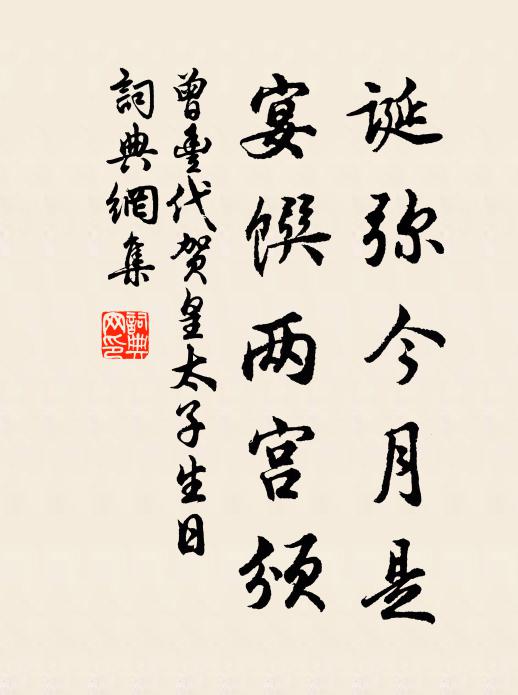 诞弥今月是
宴馔两宫颁
曾豊代贺皇太子生日
詞典網集
詞典網印